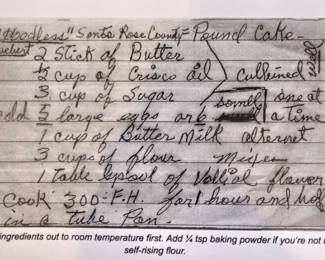 "Hoodless" Santa Rosa County = Pound Cake -
2 Stick of Butter
½ cup of Crisco oil
well
3 cup of Sugar
5 large eggs one at
a time
1 cup of Butter Milk alternet
3 cups of flour Mixes
1 table spoof of flavor
Cook 300=F.H. for 1 hour and half
in a tube Pan.
ingredients out to room temperature first. Add ¼ tsp baking powder if you're not u
self-rising flour.